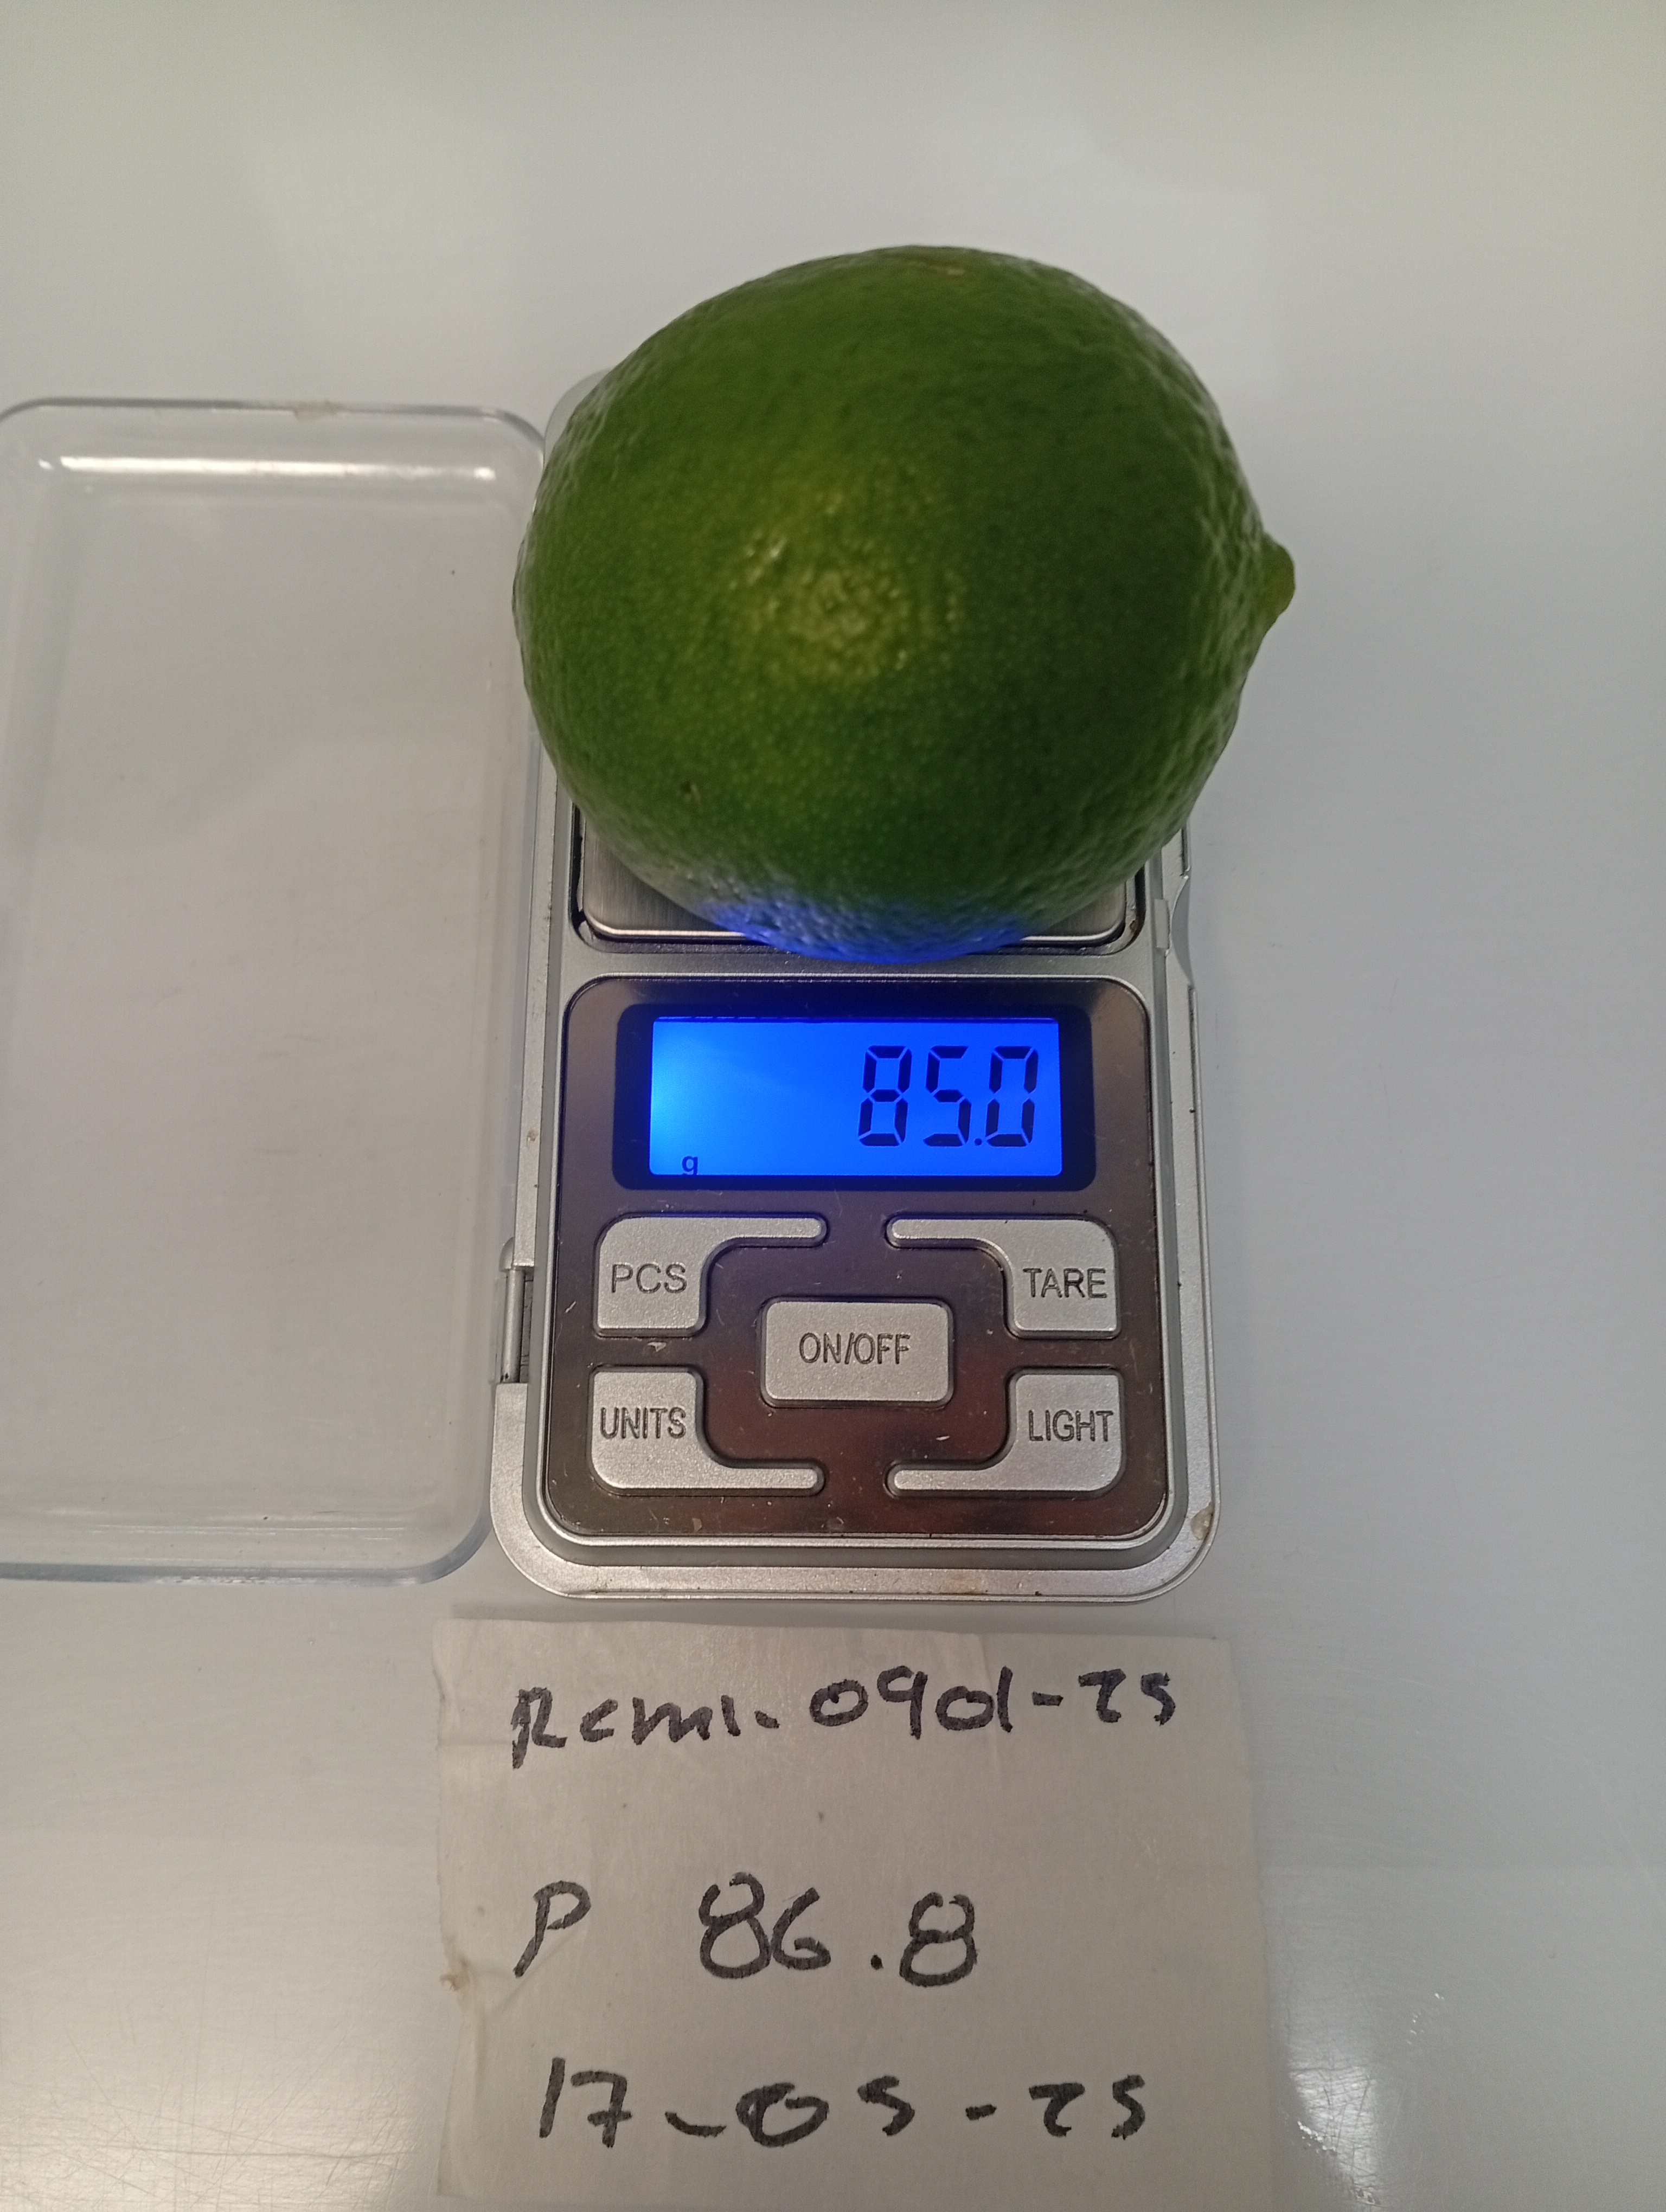 85.0
g
PCS
TARE
ON/OFF
UNITS
LIGHT
Rcml-0901-25
P 86.8
17-05-25